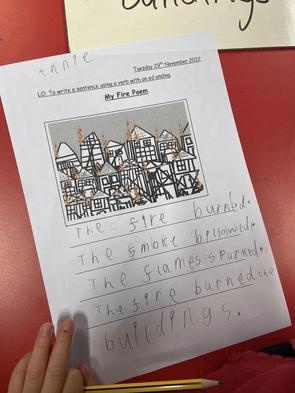 buildings
Annie
Tuesday 29th November 2022
LO: To write a sentence using a verb with an ed ending
My Fire Poem
The fire burned.
The smoke billowed.
The flames sparked.
The fire burned the
buildings.